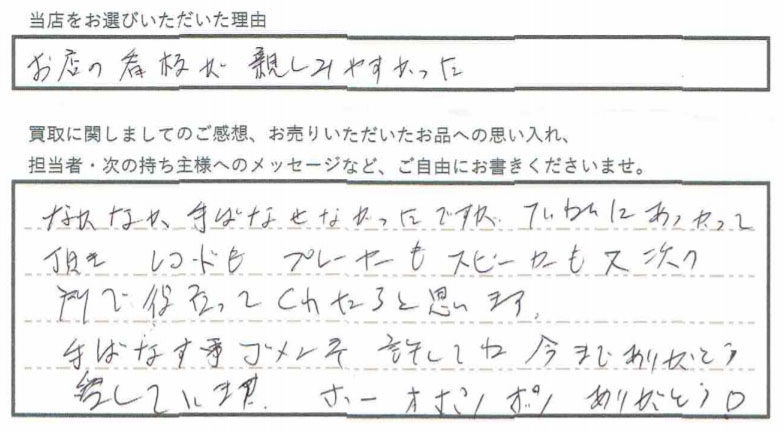 当店をお選びいただいた理由
お店の看板が親しみやすかった
買取に関しましてのご感想、お売りいただいたお品への思い入れ、
担当者・次の持ち主様へのメッセージなど、ご自由にお書きくださいませ。
なかなか、手ばなせなかったですが、ていねいにあつかって
頂き レコードも プレーヤーも スピーカーも又次の
所で役立ってくれたろと思います。
手ばなす事ゴメンネ 許してね 今までありがとう
愛しています。 ありがとう